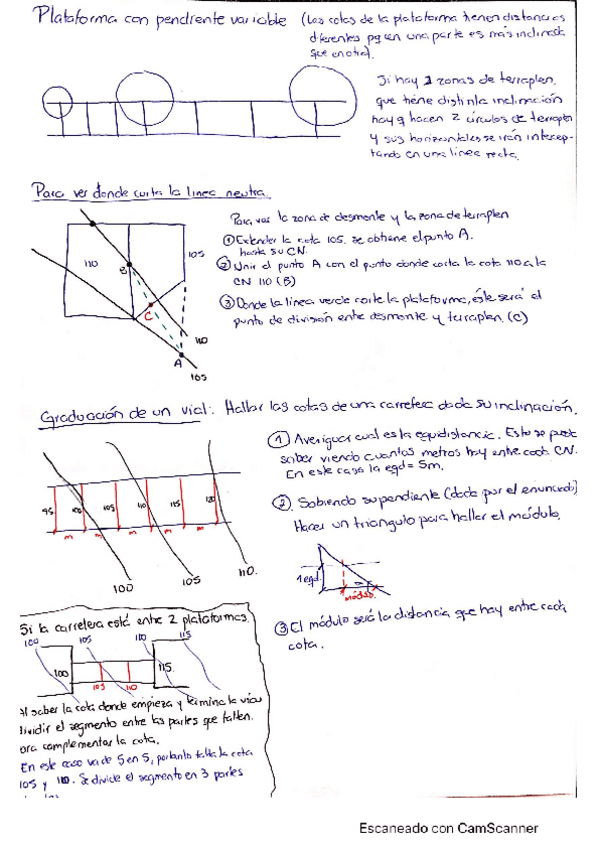 Plataforma con pendiente variable (Las cotas de la plataforma tienen distancias
diferentes pq en una parte es más inclinada
que en otra).
Si hay 2 zonas de terraplen
que tiene distinta inclinación
hay q hacen 2 círculos de terraplen
y sus horizontales se irán intercep-
tando en una línea recta.
Para ver donde corta la línea neutra.
Para ver la zona de desmonte y la zona de terraplen
① Extender la cota 105. se obtiene el punto A.
hasta su CN.
② Unir el punto A con el punto donde corta la cota 110 a la
CN 110 (B)
③ Donde la línea verde corte la plataforma, éste será el
punto de división entre desmonte y terraplen. (C)
110
105
B
C
110
A
105
Graduación de un vial: Hallar las cotas de una carretera dada su inclinación.
① Averiguar cual es la equidistancia. Esto se puede
saber viendo cuantos metros hay entre cada CN.
En este caso la eqd = 5m.
② Sabiendo su pendiente (dada por el enunciado)
Hacer un triangulo para haller el módulo.
1 eqd.
α
módulo.
③ El módulo será la distancia que hay entre cada
cota.
95
100
105
110
115
120
m
m
m
m
m
100
105
110.
Si la carretera está entre 2 plataformas.
100
105
110
115
100
115.
105
110
Al saber la cota donde empieza y termina la vía
dividir el segmento entre las partes que falten.
para complementar la cota.
En este caso va de 5 en 5, portanto falta la cota
105 y 110. Se divide el segmento en 3 partes
Escaneado con CamScanner